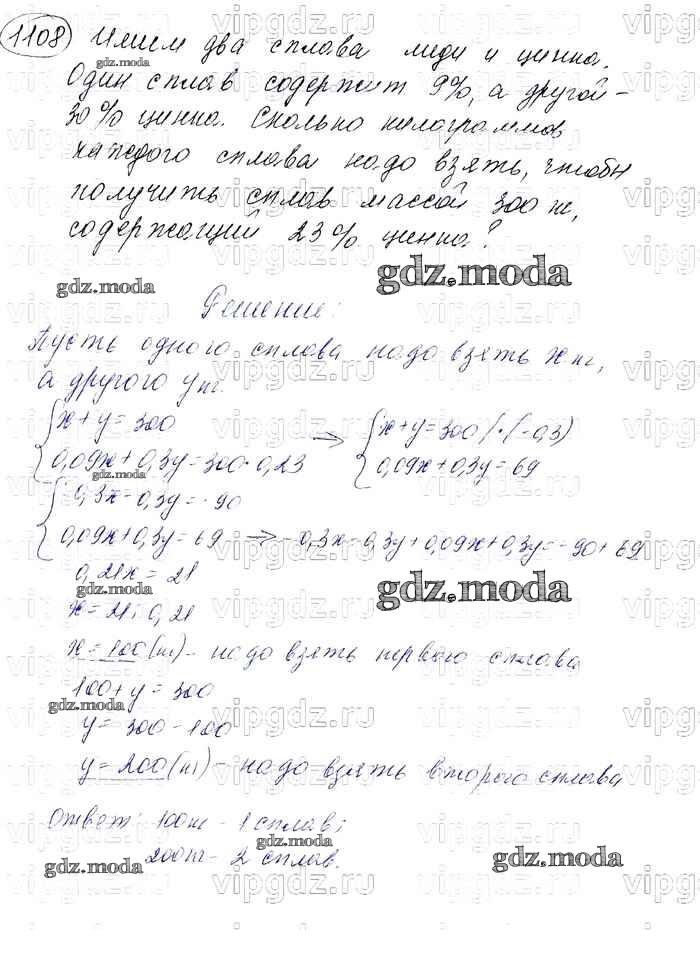 1108 Имеем два сплава меди и цинка.
Один сплав содержит 9%, а другой –
30% цинка. Сколько килограммов
каждого сплава надо взять, чтобы
получить сплав массой 300 кг,
содержащий 23% цинка?
Решение:
Пусть одного сплава надо взять x кг,
а другого y кг.
{ x + y = 300 → { x + y = 300 | · (-0,3)
{ 0,09x + 0,3y = 300 · 0,23 { 0,09x + 0,3y = 69
{ -0,3x - 0,3y = -90
{ 0,09x + 0,3y = 69 → -0,3x - 0,3y + 0,09x + 0,3y = -90 + 69
0,21x = 21
x = 21 : 0,21
x = 100 (кг) – надо взять первого сплава
100 + y = 300
y = 300 - 100
y = 200 (кг) – надо взять второго сплава
Ответ: 100 кг - 1 сплав;
200 кг - 2 сплав.
gdz.moda
vipgdz.ru